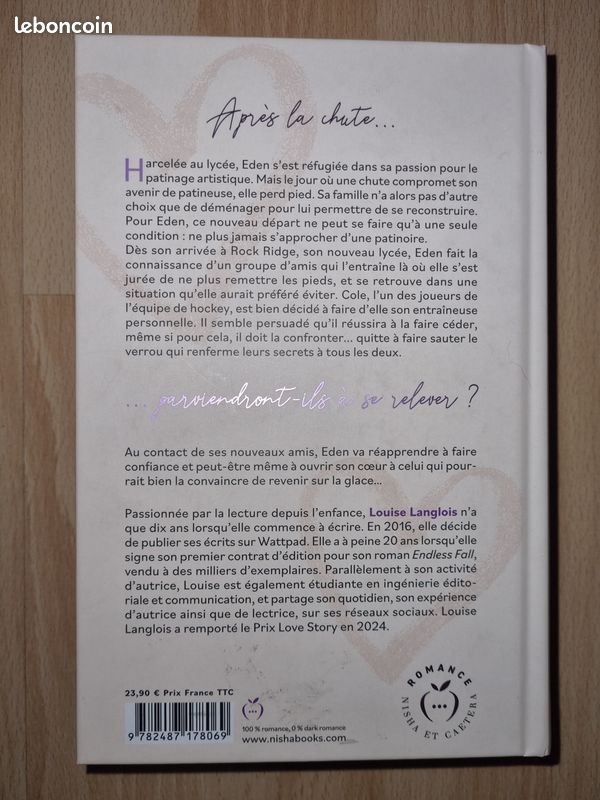 leboncoin
Après la chute...
Harcelée au lycée, Eden s'est réfugiée dans sa passion pour le
patinage artistique. Mais le jour où une chute compromet son
avenir de patineuse, elle perd pied. Sa famille n'a alors pas d'autre
choix que de déménager pour lui permettre de se reconstruire.
Pour Eden, ce nouveau départ ne peut se faire qu'à une seule
condition : ne plus jamais s'approcher d'une patinoire.
Dès son arrivée à Rock Ridge, son nouveau lycée, Eden fait la
connaissance d'un groupe d'amis qui l'entraîne là où elle s'est
jurée de ne plus remettre les pieds, et se retrouve dans une
situation qu'elle aurait préféré éviter. Cole, l'un des joueurs de
l'équipe de hockey, est bien décidé à faire d'elle son entraîneuse
personnelle. Il semble persuadé qu'il réussira à la faire céder,
même si pour cela, il doit la confronter... quitte à faire sauter le
verrou qui renferme leurs secrets à tous les deux.
... parviendront-ils à se relever ?
Au contact de ses nouveaux amis, Eden va réapprendre à faire
confiance et peut-être même à ouvrir son cœur à celui qui pour-
rait bien la convaincre de revenir sur la glace...
Passionnée par la lecture depuis l'enfance, Louise Langlois n'a
que dix ans lorsqu'elle commence à écrire. En 2016, elle décide
de publier ses écrits sur Wattpad. Elle a à peine 20 ans lorsqu'elle
signe son premier contrat d'édition pour son roman Endless Fall,
vendu à des milliers d'exemplaires. Parallèlement à son activité
d'autrice, Louise est également étudiante en ingénierie édito-
riale et communication, et partage son quotidien, son expérience
d'autrice ainsi que de lectrice, sur ses réseaux sociaux. Louise
Langlois a remporté le Prix Love Story en 2024.
23,90 € Prix France TTC
9 782487 178069
100 % romance, 0 % dark romance
www.nishabooks.com
ROMANCE
NISHA ET CAETERA